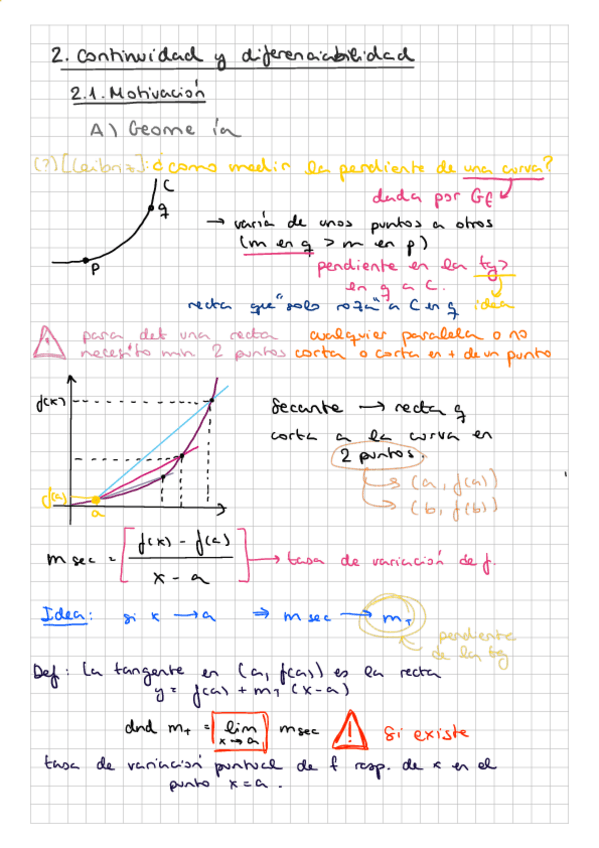 2. Continuidad y diferenciabilidad
2.1. Motivación
A) Geome ía
(?) [Leibniz]: ¿como medir la pendiente de una curva?
C
q
p
dada por Gf
→ varía de unos puntos a otros
(m en q > m en p)
pendiente en la tg
en q a C.
recta que "solo roza" a C en q idea
para det una recta
necesito min. 2 puntos
cualquier paralela o no
corta o corta en + de un punto
f(x)
f(a)
a
Secante → recta q
corta a la curva en
2 puntos.
(a, f(a))
(b, f(b))
m sec = [f(x) - f(a) / x - a] → tasa de variación de f.
Idea: si x → a ⇒ m sec → mT
pendiente
de la tg
Def: La tangente en (a, f(a)) es la recta
y = f(a) + mT (x-a)
dnd mT = lim x→a m sec si existe
tasa de variación puntual de f resp. de x en el
punto x=a.